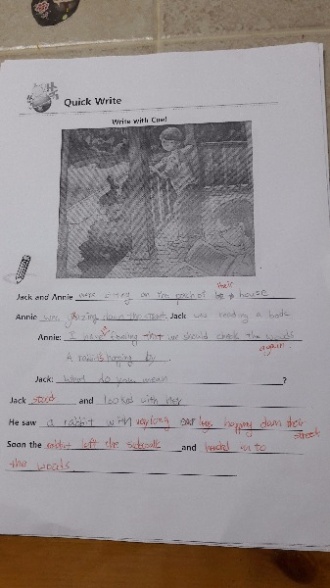 Quick Write
Write with Coo!
their
Jack and Annie were sitting on the porch of house
Annie was down the street Jack was reading a book
Annie: I have feeling that we should check the woods
again.
A rabbit's hopping by.
Jack: What do you mean ?
Jack stood and looked with her
He saw a rabbit with very long ear legs hopping down the
street
Soon the rabbit left the sidewalk and headed in to
the woods